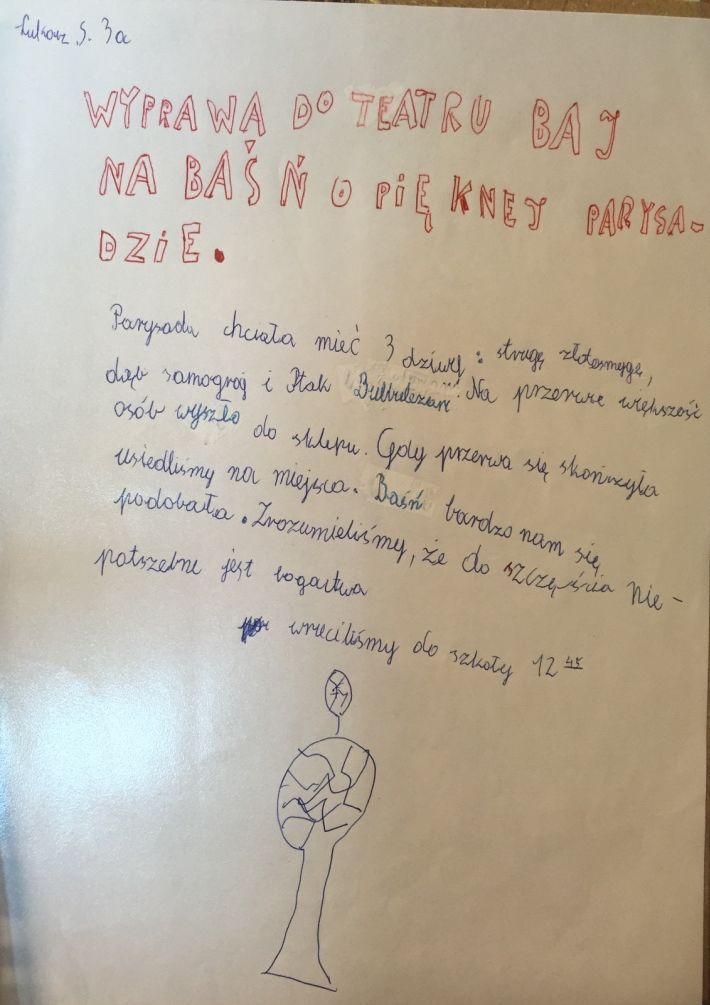 Łukasz S. 3a
WYPRAWA DO TEATRU BAJ
NA BAŚŃ O PIĘKNEJ PARYSA-
DZIE.
Parysada chciała mieć 3 dziwy: strugę złotosmęgę,
dąb samograj i Ptak Bulbulezar. Na przerwie większość
osób wyszło do sklepu. Gdy przerwa się skończyła
usiedliśmy na miejsca. Baśń bardzo nam się
podobała. Zrozumieliśmy, że do szczęścia nie-
potszebne jest bogactwa
wruciliśmy do szkoły 12 45